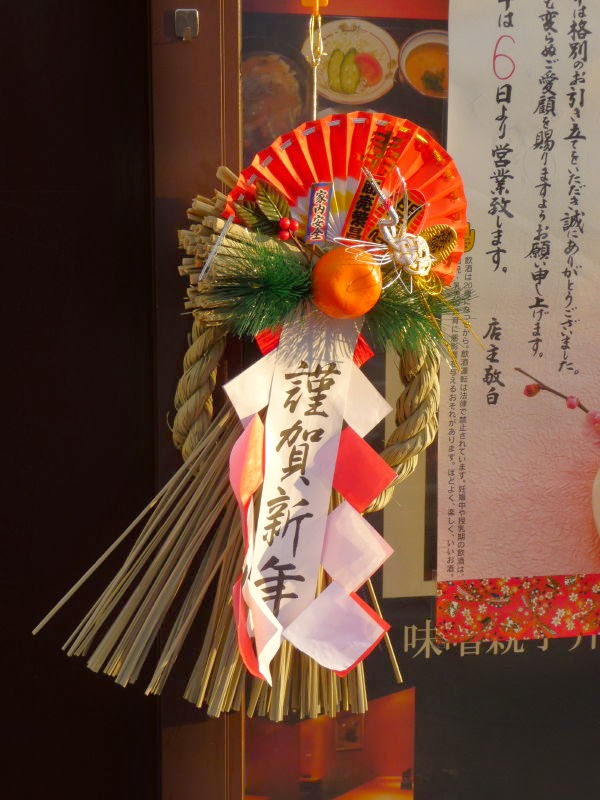 は格別のお引き立てをいただき誠にありがとうございました。
も変らぬご愛顧を賜りますようお願い申し上げます。
は6日より営業致します。
店主敬白
飲酒は20歳になってから。飲酒運転は法律で禁止されています。妊娠中や授乳期の飲酒は、
に悪影響を与えるおそれがあります。ほどよく、楽しく、いいお酒。
家内安全
商売繁昌
謹賀新年
味噌